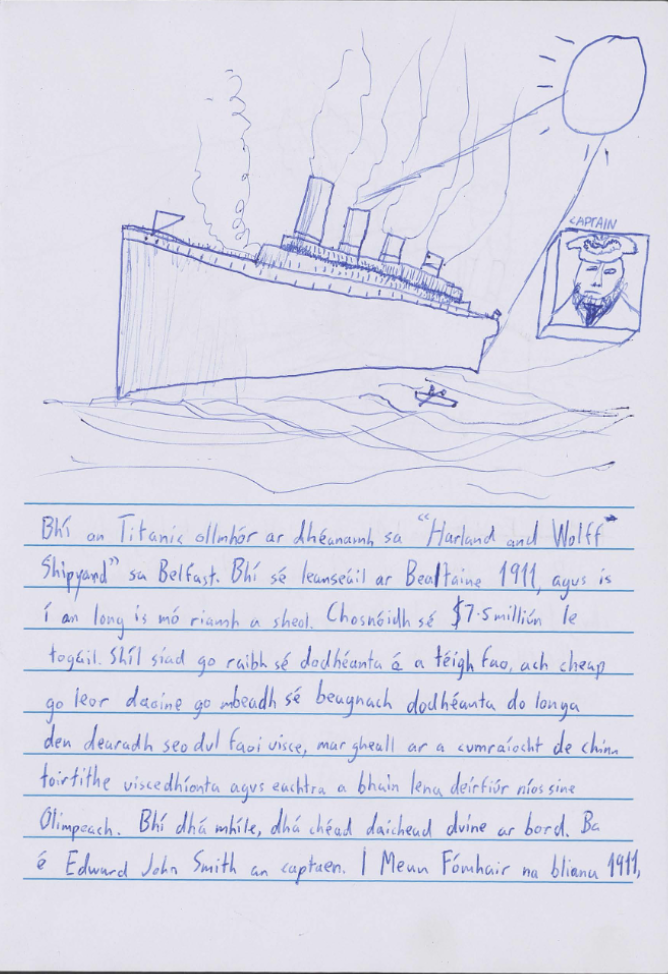 CAPTAIN
Bhí an Titanic ollmhór ar dhéanamh sa "Harland and Wolff
Shipyard" sa Belfast. Bhí sé leanseáil ar Bealtaine 1911, agus is
í an long is mó riamh a sheol. Chosnóidh sé $7.5 milliún le
togáil. Shíl siad go raibh sé dodhéanta é a téigh fao, ach cheap
go leor daoine go mbeadh sé beagnach dodhéanta do longa
den dearadh seo dul faoi uisce, mar gheall ar a cumraíocht de chinn
toirtithe uiscedhíonta agus eachtra a bhain lena deirfiúr níos sine
Olimpeach. Bhí dhá mhíle, dhá chéad daichead duine ar bord. Ba
é Edward John Smith an captaen. I Meun Fómhair na bliana 1911,